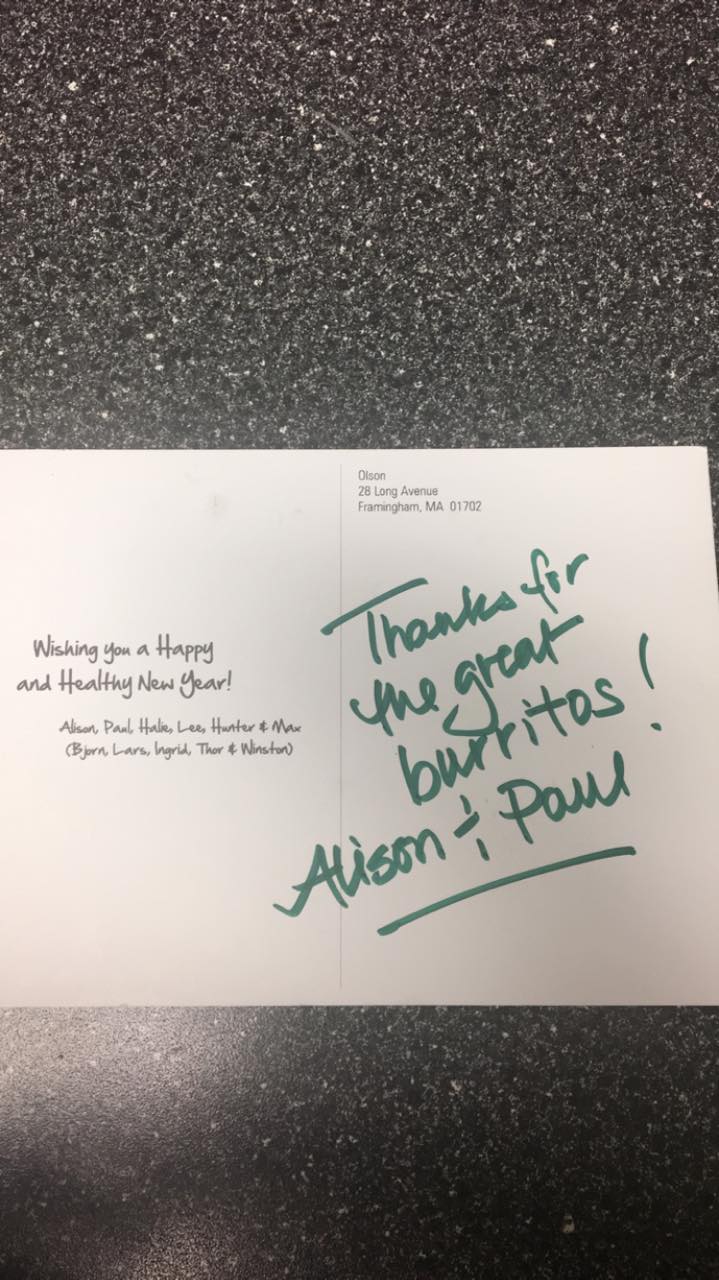 Olson
28 Long Avenue
Framingham, MA 01702
Wishing you a Happy
and Healthy New Year!
Alison, Paul, Halie, Lee, Hunter & Max
(Bjorn, Lars, Ingrid, Thor & Winston)
Thanks for
the great
burritos!
Alison & Paul